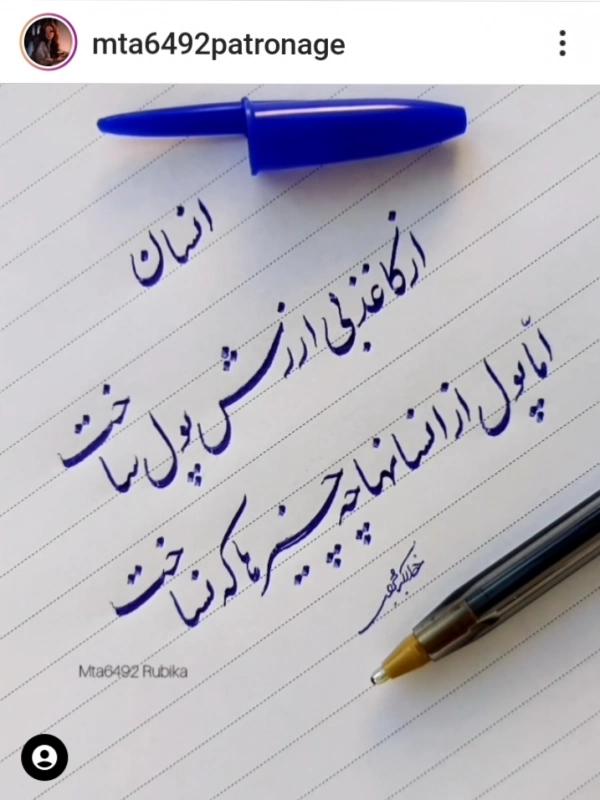 mta6492patronage
انسان
از کاغذ بی ارزش پول ساخت
امّا پول از انسانها چه چیزها که نساخت
Mta6492 Rubika